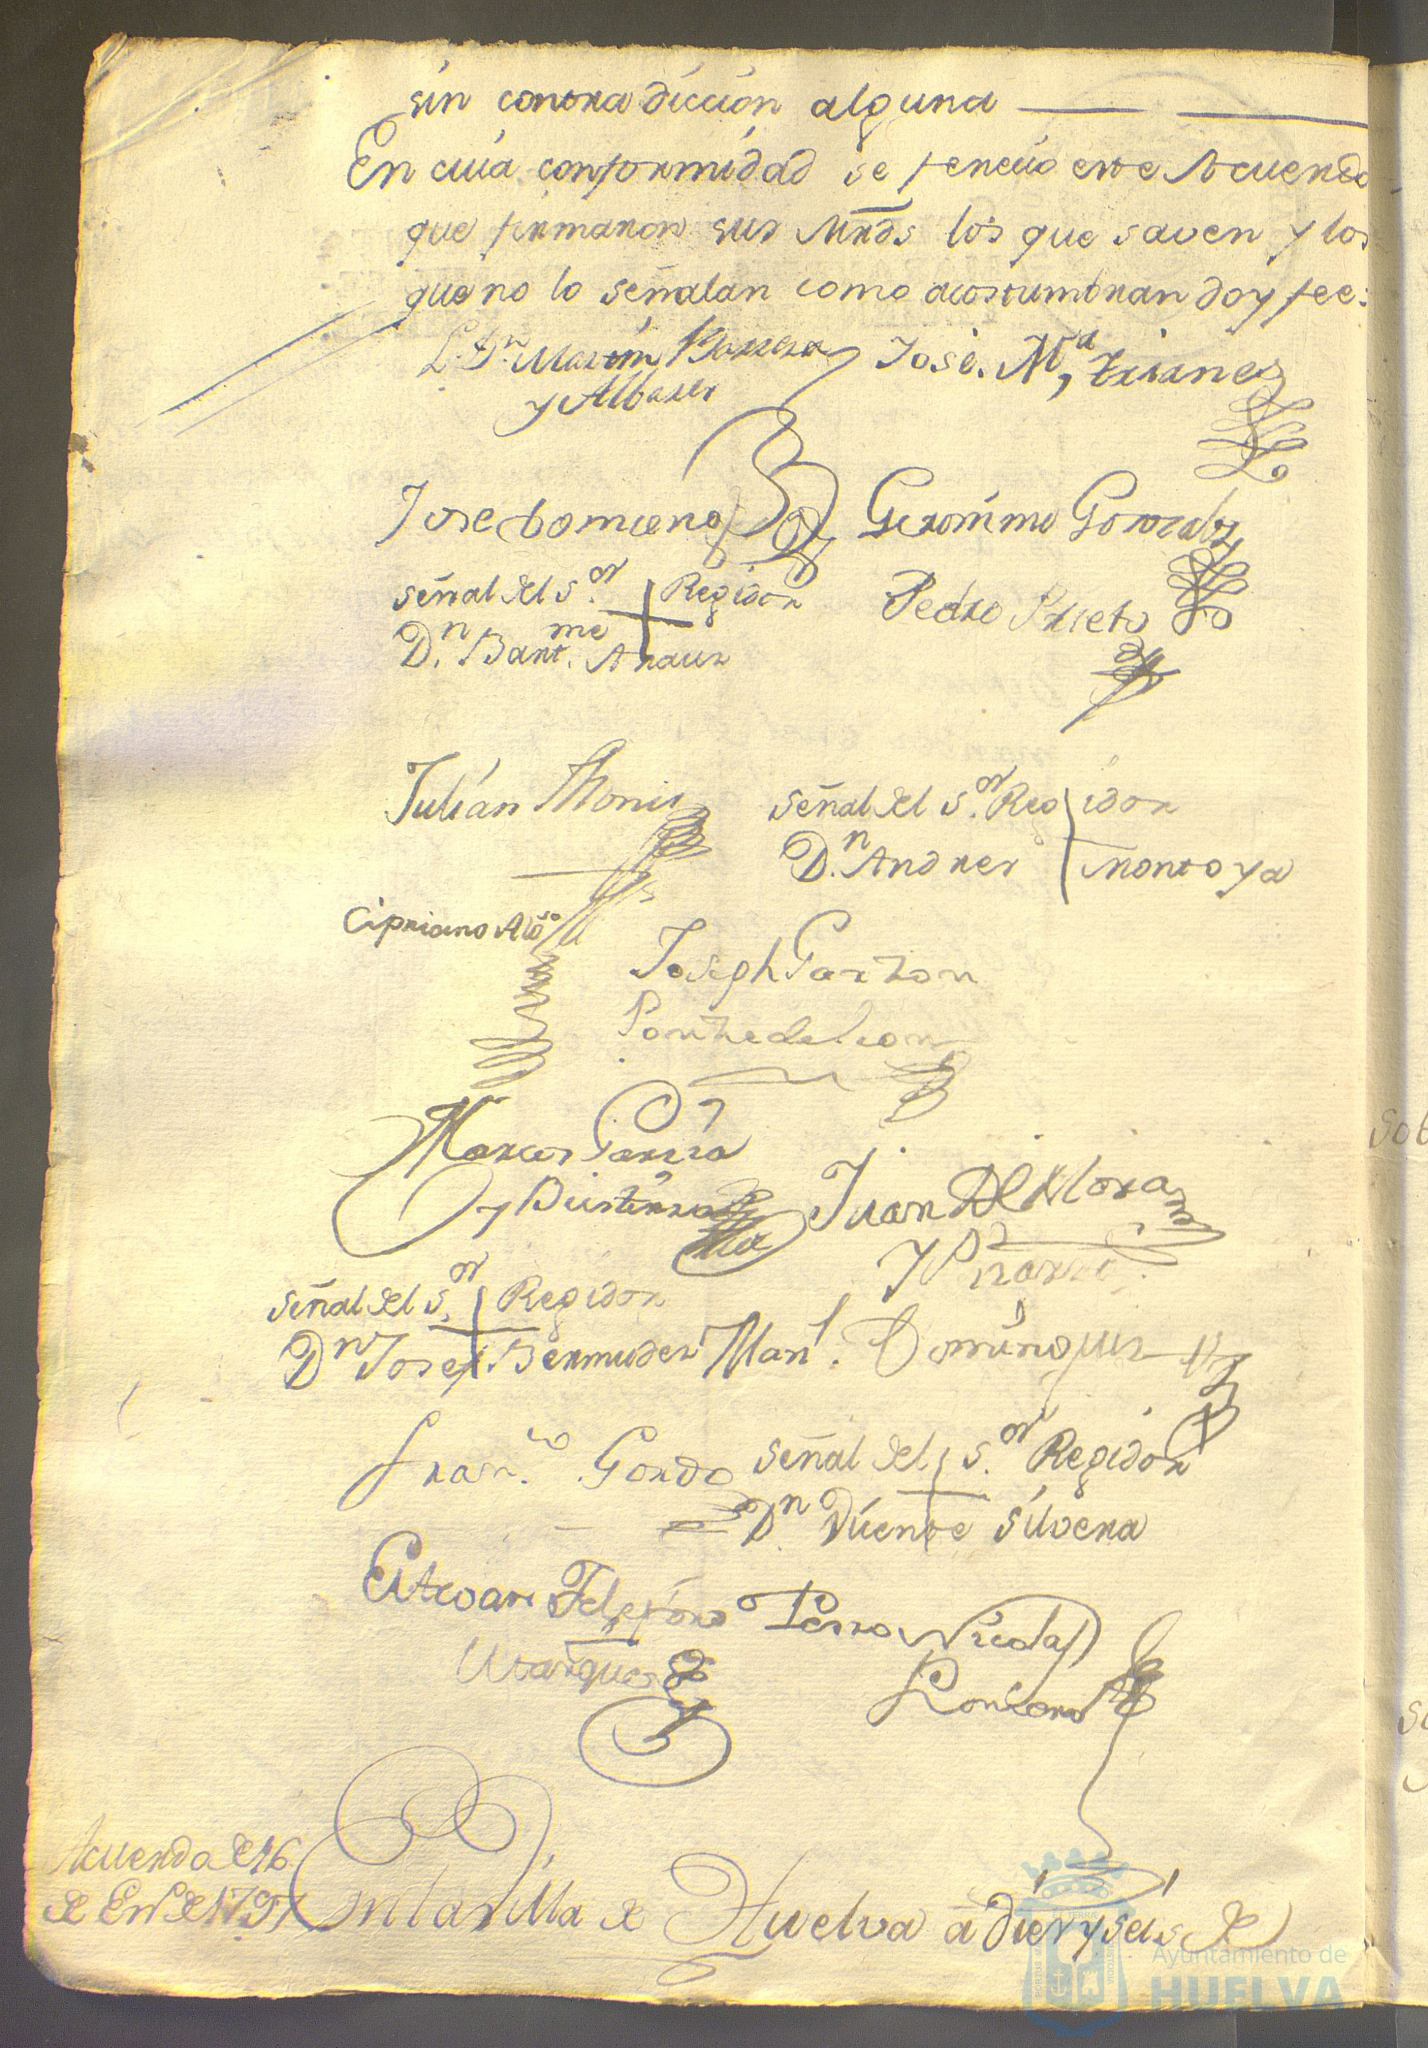 sin contradiccion alguna
En cuia conformidad se fenecio este Acuerdo
que firmaron sus Mrds los que saven y los
que no lo señalan como acostumbran doy fee:
L. Dn. Martin Barrera
y Albarer
José. Ma, Trianes
Jose domieno
Geronimo Gonzalez
señal del s.or + Regidor
D.n Bart.me Araur
Pedro Prieto
Julian Monis
señal del s.or Regidor
D.n Andres Montoya
Cipriano Alo.so
Joseph Garzon
Ponze de Leon
Marcos Garcia
y
Juan de Mora
y
señal del s.or Regidor
Dn Josef Bermudez
Manl. Dominguez
Fran.co Gordo
señal del s.or Regidor
Dn Vicente Silvera
Estevan Telesforo
Marquez
Pedro Nicolas
Romero
Acuerdo de 16
de En.o de 1797
En la Villa de Huelva a diez y seis de
Ayuntamiento de
HUELVA